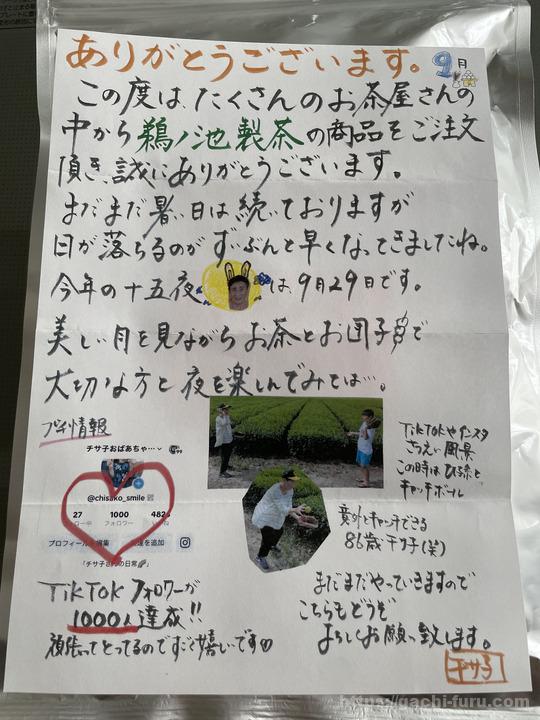 ありがとうございます。9月
この度は、たくさんのお茶屋さんの
中から鵜ノ池製茶の商品をご注文
頂き、誠にありがとうございます。
まだまだ暑い日は続いておりますが
日が落ちるのがずいぶんと早くなってきましたね。
今年の十五夜は、9月29日です。
美しい月を見ながらお茶とお団子で
大切な方と夜を楽しんでみては…。
プチ情報
チサ子おばあちゃ…
@chisako_smile
27
1000
482
フォロワー
プロフィール編集
を追加
「チサ子さんの日常
TikTokフォロワーが
1000人達成!!
頑張ってとってるのですごく嬉しいです
TikTokやインスタ
この時は
キャッチボール
意外とキャッチできる
86歳チサ子(笑)
まだまだやっていきますので
こちらもどうぞ
よろしくお願い致します。
チサ子
https://gachi-furu.com